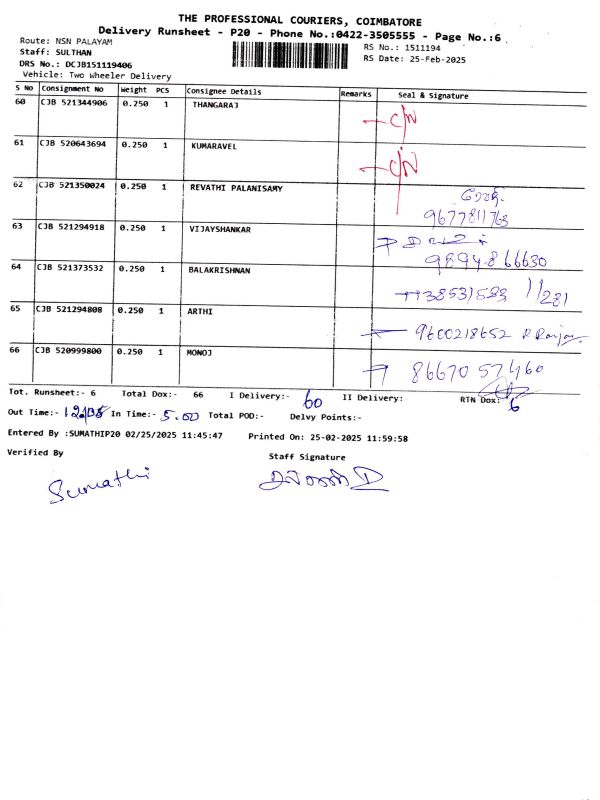 THE PROFESSIONAL COURIERS, COIMBATORE
Delivery Runsheet - P20 - Phone No.:0422-3505555 - Page No.:6
Route: NSN PALAYAM
RS No.: 1511194
Staff: SULTHAN
RS Date: 25-Feb-2025
DRS No.: DCJB151119406
Vehicle: Two Wheeler Delivery
S No Consignment No Weight PCS Consignee Details Remarks Seal & Signature
60 CJB 521344906 0.250 1 THANGARAJ
61 CJB 520643694 0.250 1 KUMARAVEL
62 CJB 521350024 0.250 1 REVATHI PALANISAMY
9677811763
63 CJB 521294918 0.250 1 VIJAYSHANKAR
9894866630
64 CJB 521373532 0.250 1 BALAKRISHNAN
65 CJB 521294808 0.250 1 ARTHI
9600218652
66 CJB 520999800 0.250 1 MONOJ
8667057460
Tot. Runsheet:- 6 Total Dox:- 66 I Delivery:- 60 II Delivery: RTN Dox: 6
Out Time:- In Time:- 5.00 Total POD:- Delvy Points:-
Entered By :SUMATHIP20 02/25/2025 11:45:47 Printed On: 25-02-2025 11:59:58
Verified By Staff Signature
Sumathi